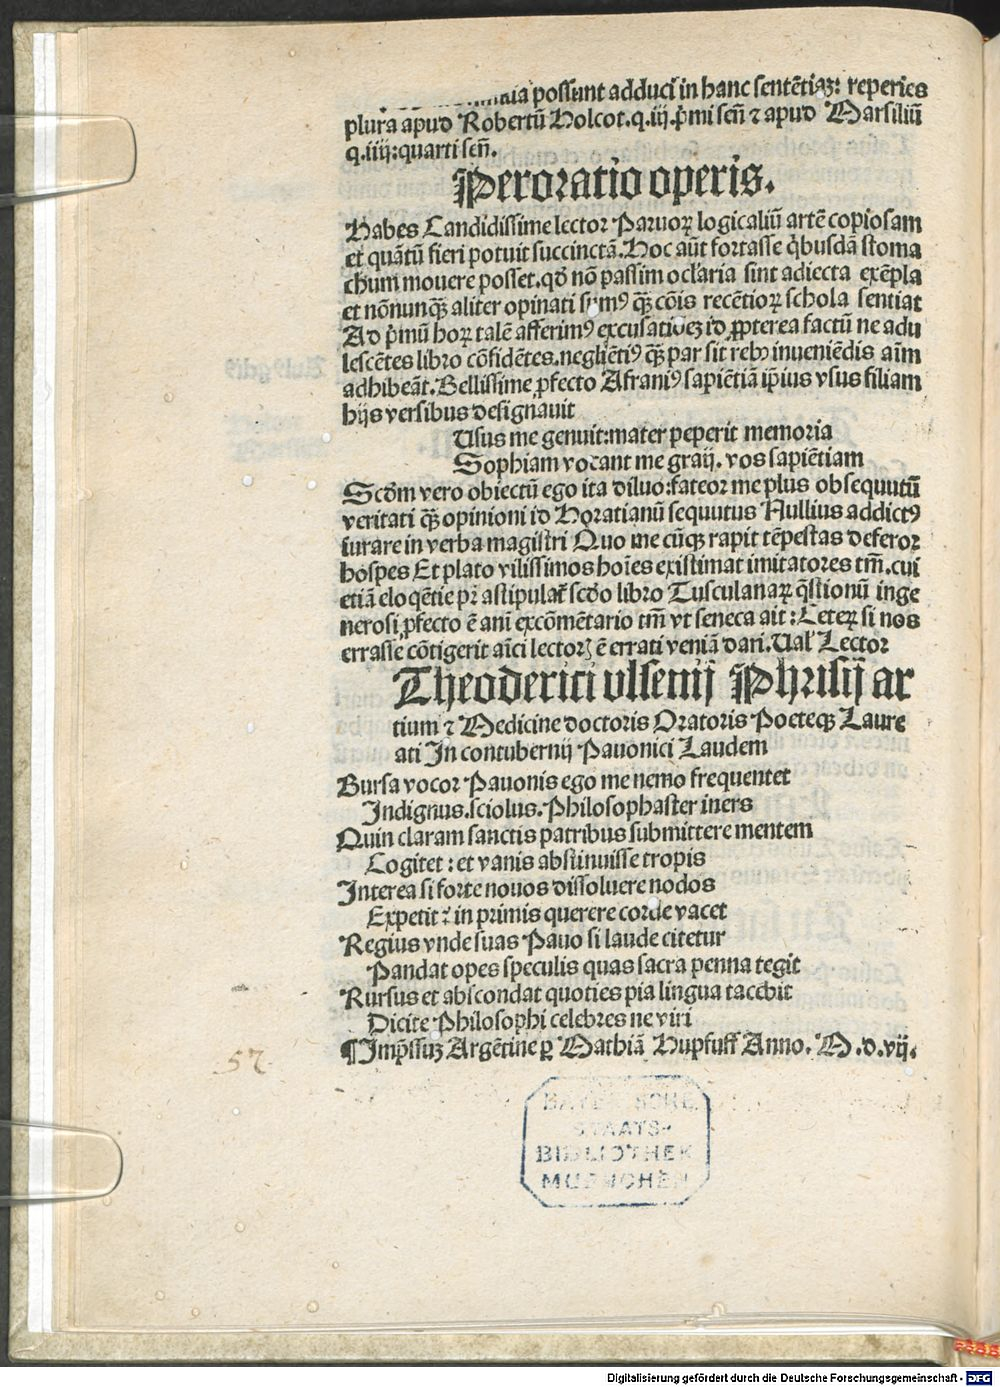 possunt adduci in hanc sentētiaꝫ: reperies
plura apud Robertū Holcot.q.iij.p̄mi sen̄ ⁊ apud Marsiliū
q.iiij:quarti sen̄.
Peroratio operis.
Habes Candidissime lector Paruoꝝ logicaliū artē copiosam
et quātū fieri potuit succinctā.Hoc aūt fortasse q̇busdā stoma
chum mouere posset.qd̄ nō passim oc̄laria sint adiecta exēpla
et nōnunqꝫ aliter opinati sumꝰ qꝫ cōis recētioꝝ schola sentiat
Ad p̄mū hoꝝ talē afferimꝰ excusatiōeꝫ id ꝓpterea factū ne adu
lescētes libro cōfidētes.negliētiꝰ qꝫ par sit rebꝰ inueniēdis aīm
adhibeāt.Bellissime ꝓfecto Afraniꝰ sapiētiā ip̄ius vsus filiam
hijs versibus designauit
Usus me genuit:mater peperit memoria
Sophiam vocant me graij. vos sapiētiam
Scd̄m vero obiectū ego ita diluo:fateor me plus obsequutū
veritati qꝫ opinioni id Horatianū sequutus Nullius addictꝰ
iurare in verba magistri Quo me cūqꝫ rapit tēpestas deferor
hospes Et plato vilissimos hoīes existimat imitatores tm̄.cui
etiā eloq̄tie pr̄ astipulat̄ scd̄o libro Tusculanaꝝ q̄stionū inge
nerosi ꝓfecto ē ani excōmētario tm̄ vt seneca ait:Ceteꝝ si nos
errasse cōtigerit aīci lectorꝭ ē errati veniā dari.Ual̄ Lector
Theoderici vlsenij Phrisij ar
tium ⁊ Medicine doctoris Oratoris Poeteqꝫ Laure
ati In contubernij Pauonici Laudem
Bursa vocor Pauonis ego me nemo frequentet
Indignus.sciolus.Philosophaster iners
Quin claram sanctis patribus submittere mentem
Cogitet: et vanis abstinuisse tropis
Interea si forte nouos dissoluere nodos
Expetit ⁊ in primis querere corde vacet
Regius vnde suas Pauo si laude citetur
Pandat opes speculis quas sacra penna tegit
Rursus et abscondat quoties pia lingua tacebit
Dicite Philosophi celebres ne viri
¶Imp̄ssuꝫ Argētine ꝑ Mathiā Hupfuff Anno.M.d.vij.
57
BAYERISCHE
STAATS-
BIBLIOTHEK
MUENCHEN
Digitalisierung gefördert durch die Deutsche Forschungsgemeinschaft - DFG